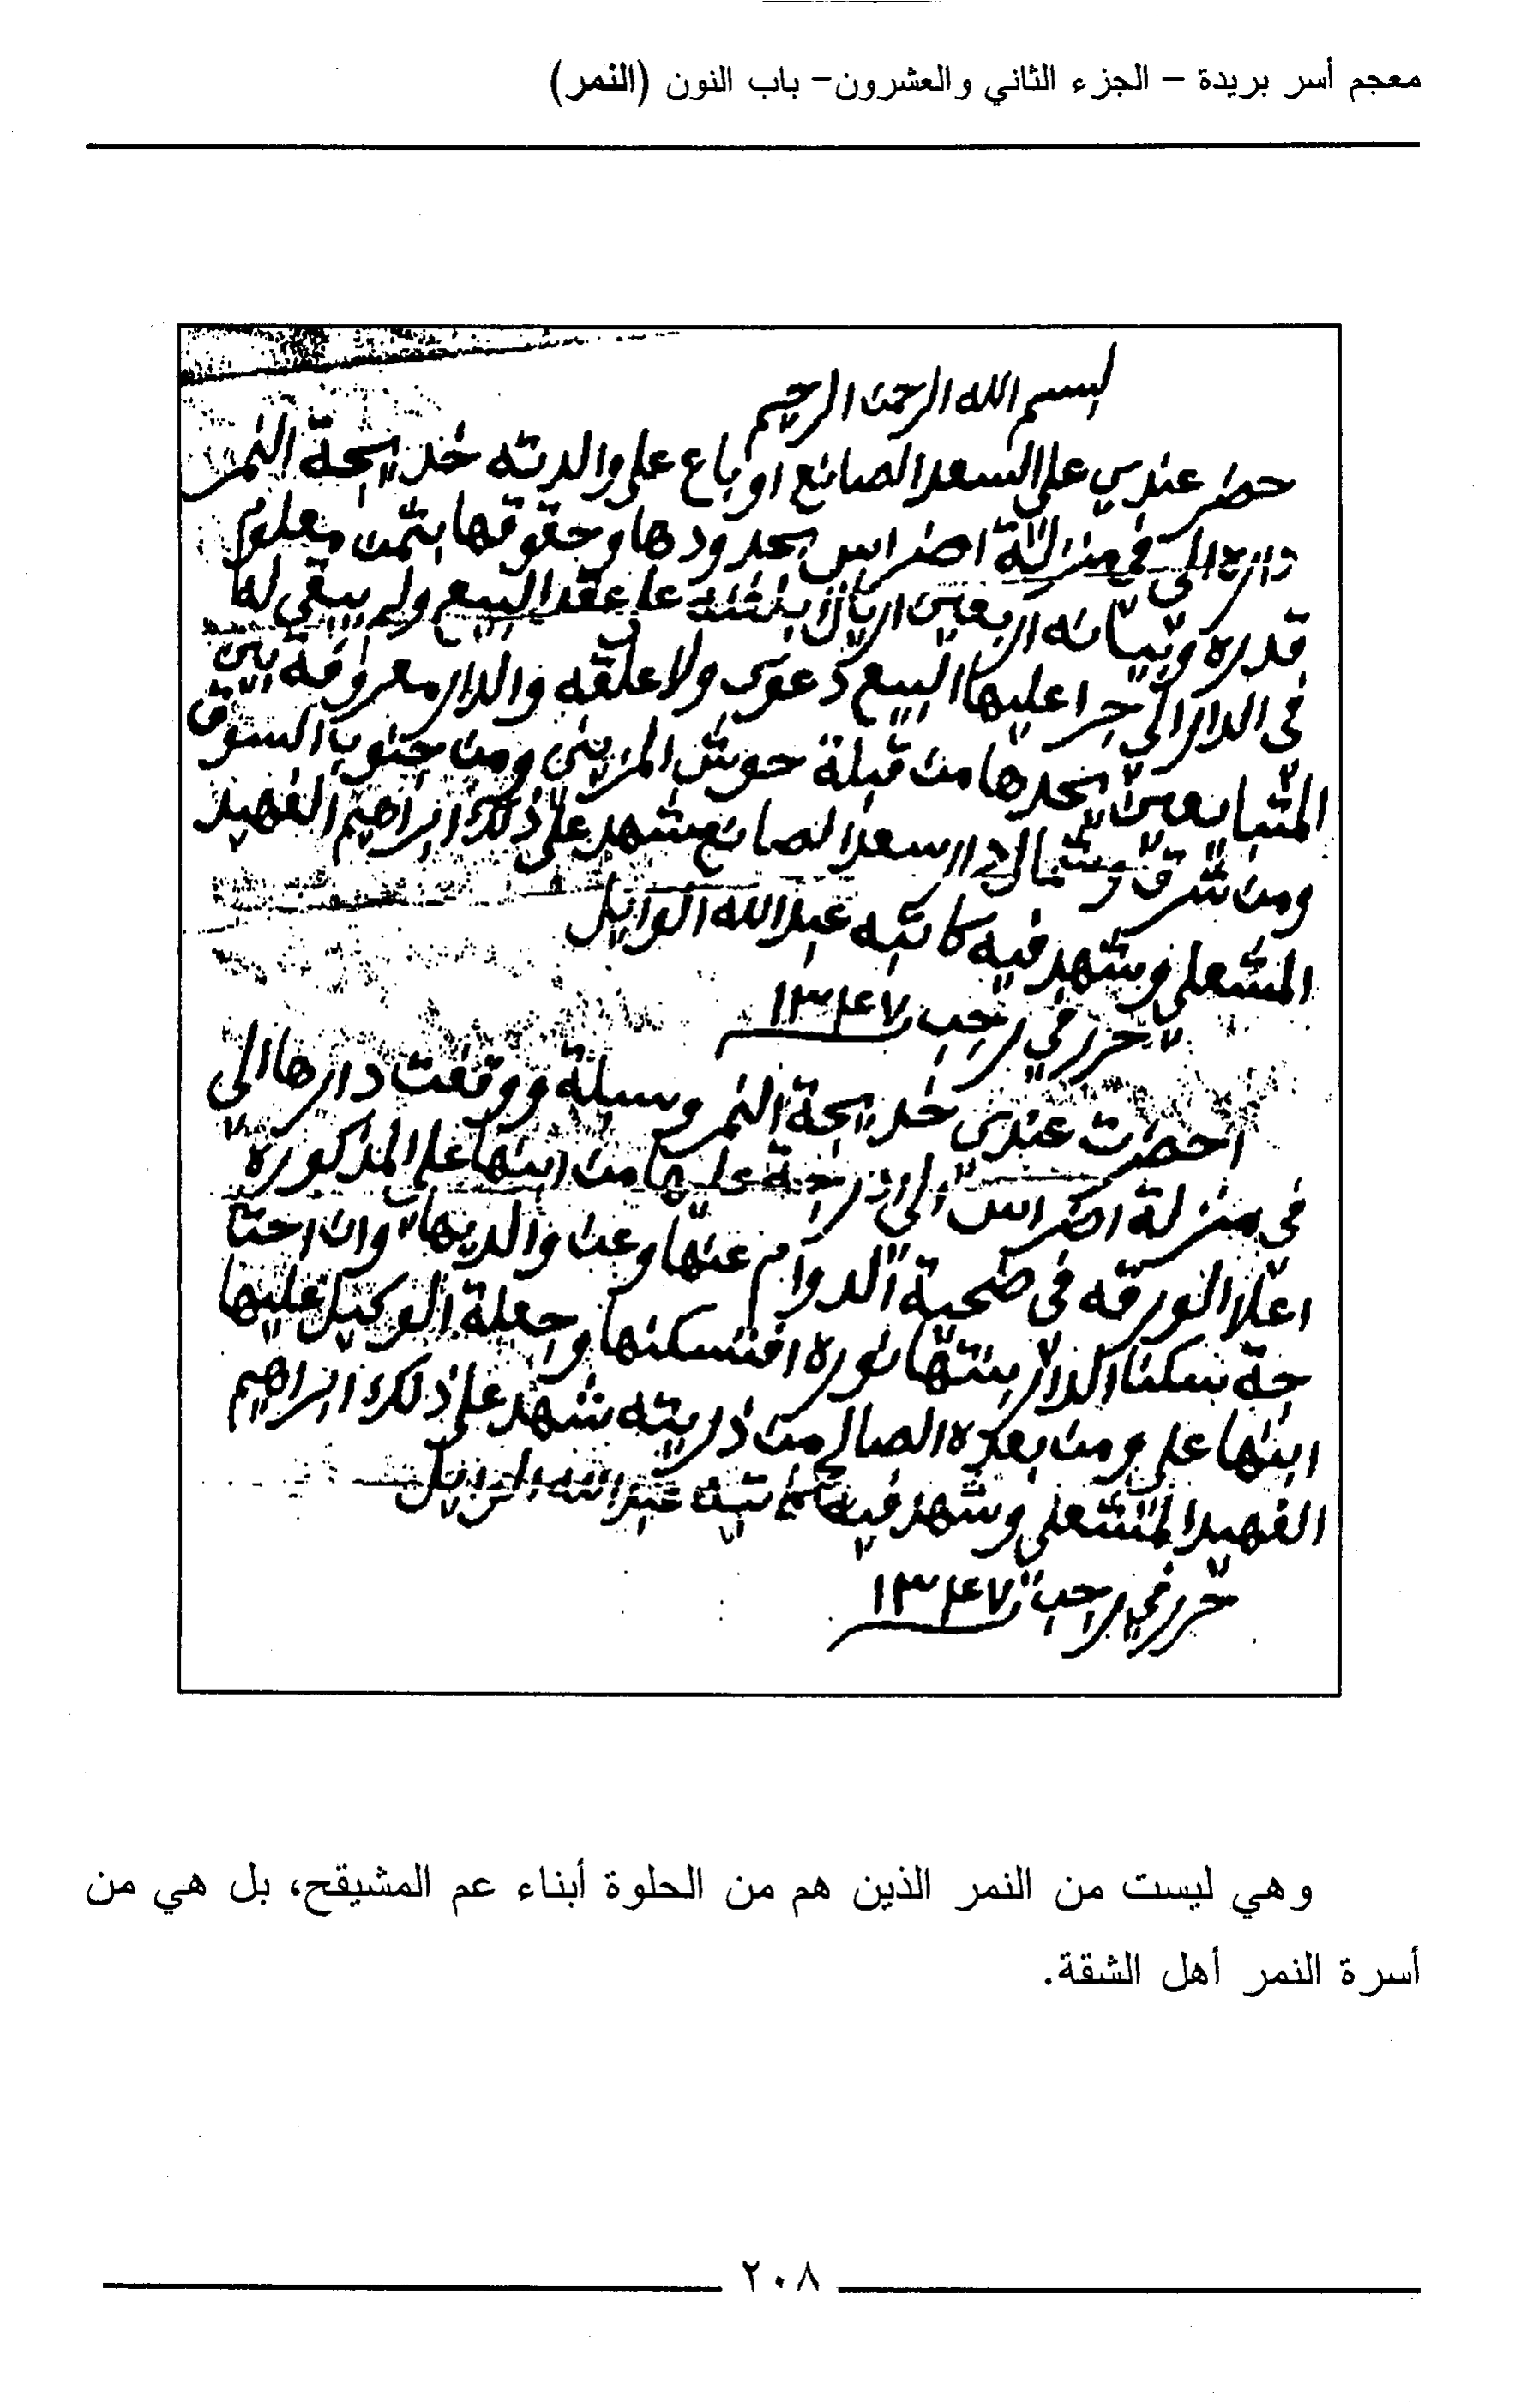 معجم أسر بريدة – الجزء الثاني والعشرون– باب النون (النمر)
بسم الله الرحمن الرحيم
حضر عندي علي السعد الصانع او باع على والدته خديجة النمر
داره الي في منزلة اضراس بحدودها وحقوقها بثمن معلوم
قدره وبيانه اربعين اريال بلغنه عقد البيع ولم يبقى له
في الدار الي جرا عليها البيع دعوى ولا علقه والدار معروفة بين
المتبايعين يحدها من قبلة حوش المزيني ومن جنوب السوق
ومن شرق وشمال دار سعد الصانع شهد على ذلك ابراهيم الفهيد
المشعلي وشهد فيه كاتبه عبدالله الوايل
حرر في رجب ١٣٤٧
احضرت عندي خديجة النمر وسبلة ووقفت دارها الي
في منزلة اضراس الي دراجة عليها من ابنها علي المذكوره
اعلا الورقه في ضحية الدوام عنها وعن والديها وان احتا
جة سكنا الدار بنتها نوره افتسكنها وجعلة الوكيل عليها
ابنها علي ومن بعده الصالح من ذريته شهد على ذلك ابراهيم
الفهيد المشعلي وشهد فيه كاتبه عبدالله الوايل
حرر في رجب ١٣٤٧
وهي ليست من النمر الذين هم من الحلوة أبناء عم المشيقح، بل هي من
أسرة النمر أهل الشقة.
٢٠٨